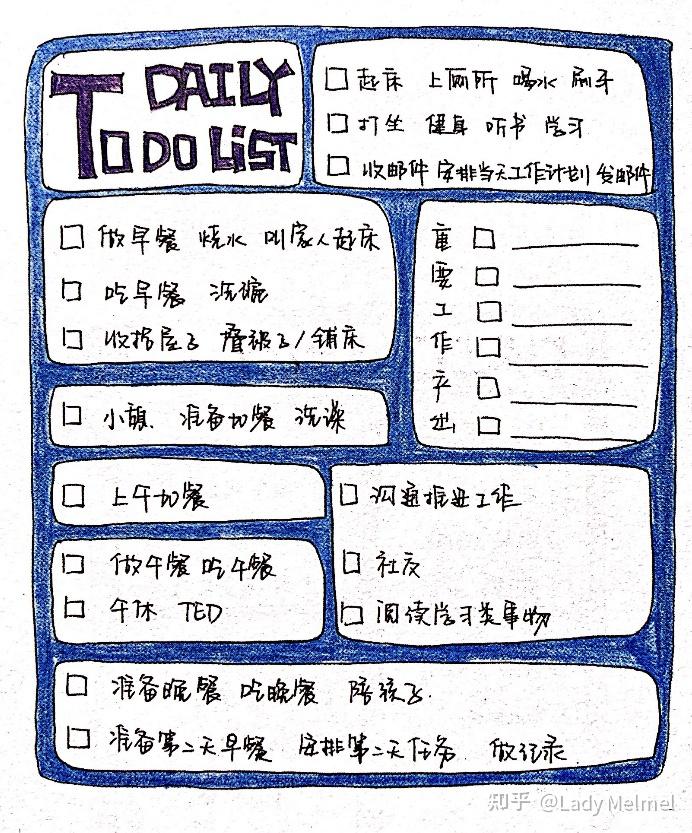 DAILY
TO DO LIST
起床 上厕所 喝水 刷牙
打坐 健身 听书 学习
收邮件 安排当天工作计划 发邮件
做早餐 烧水 叫家人起床
吃早餐 洗碗
收拾屋子 叠被子/铺床
重要工作产出
小憩. 准备加餐 洗澡
上午加餐
做午餐 吃午餐
午休 TED
沟通推进工作
社交
阅读学习类事物
准备晚餐 吃晚餐 陪孩子.
准备第二天早餐 安排第二天任务 做记录
知乎 @Lady Melmel